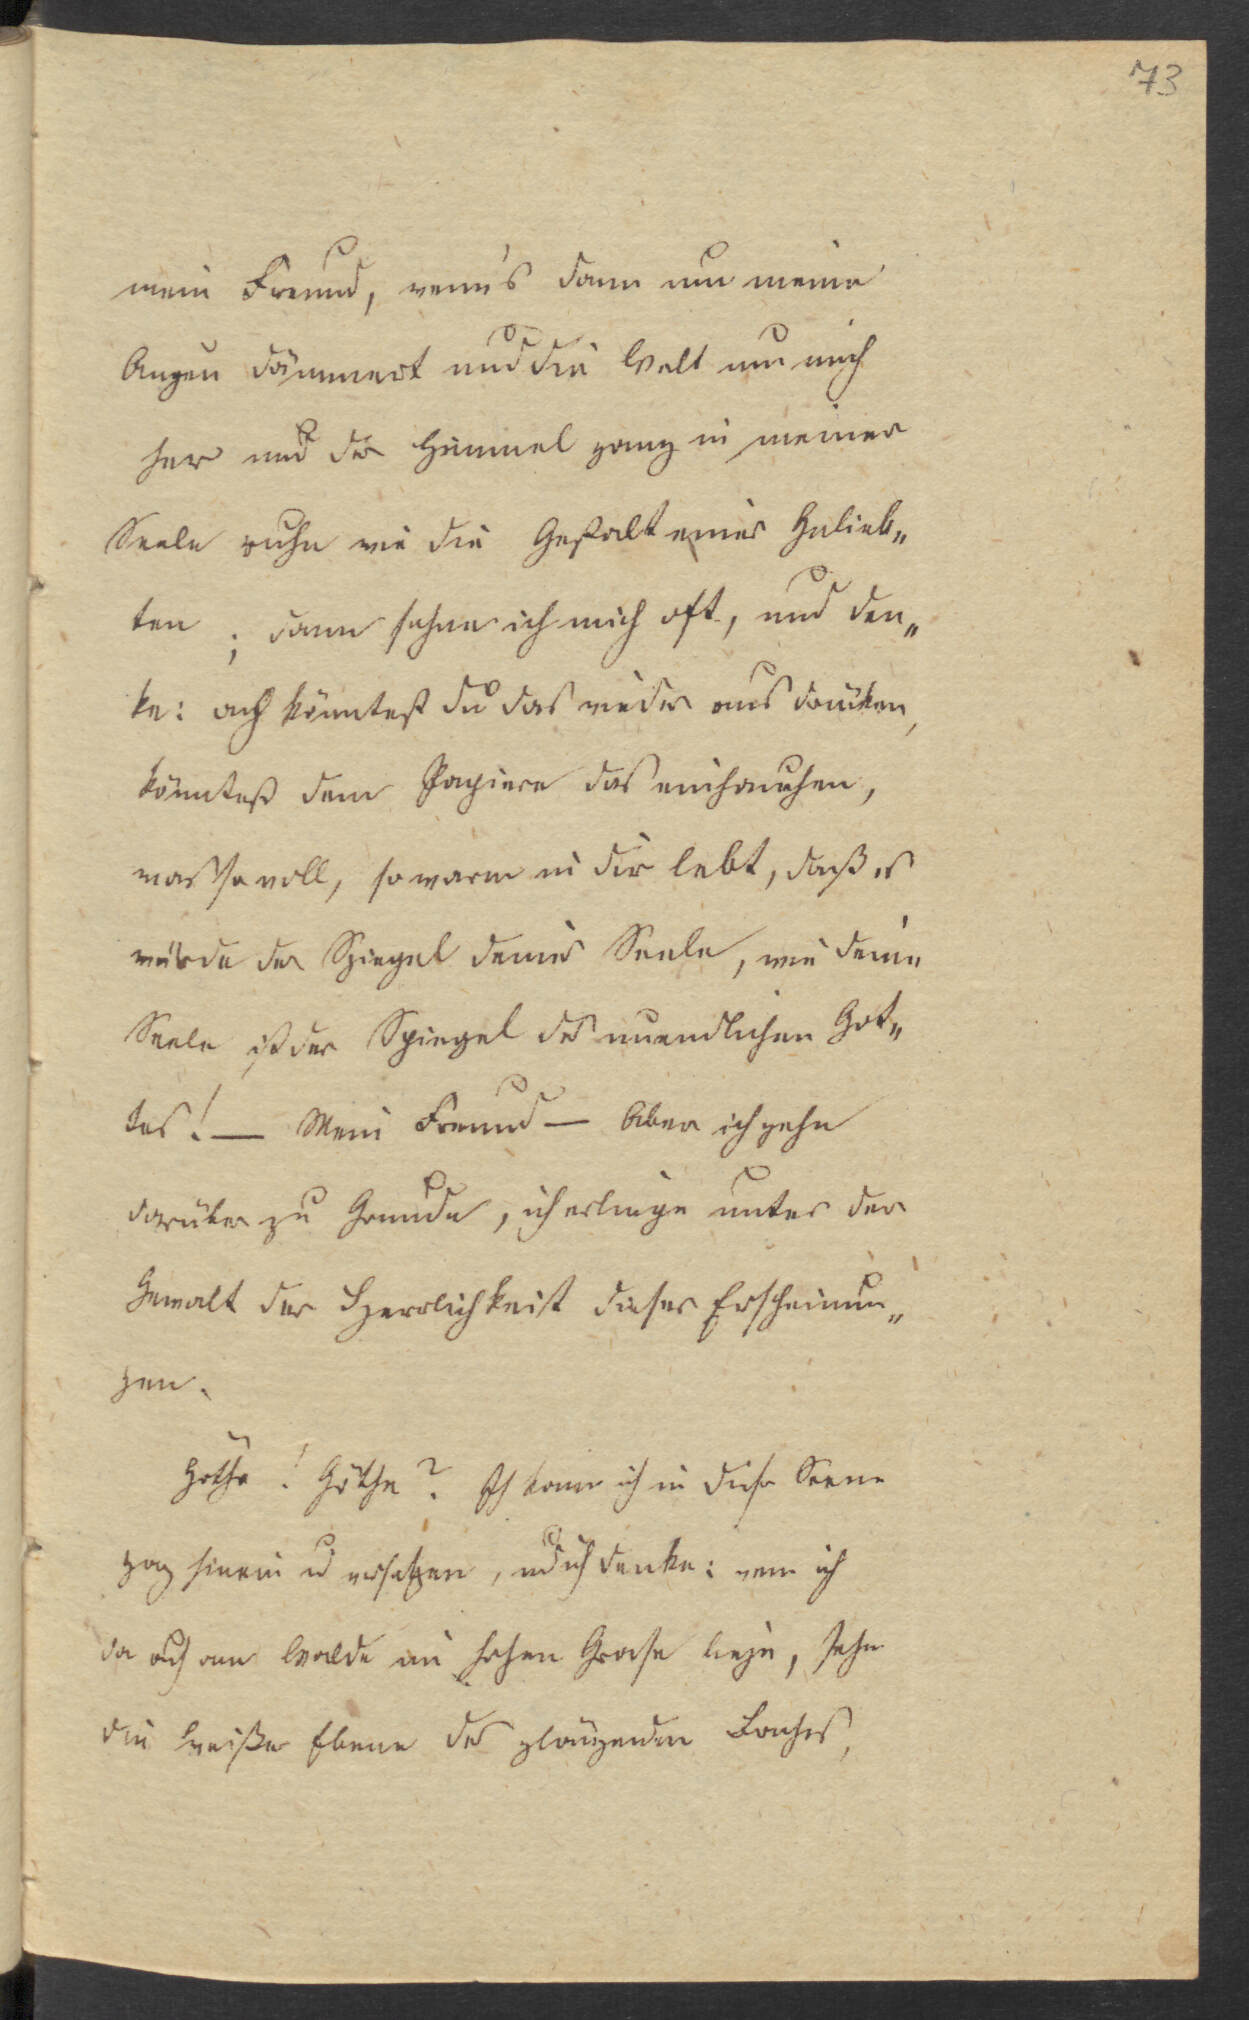 73
mein Freund, wenn's dann um meine
Augen dämmert und die Welt um mich
her und der Himmel ganz in meiner
Seele ruhn wie die Gestalt einer Gelieb„
ten; dann sehne ich mich oft, und den„
ke: ach könntest du das wieder ausdrücken,
könntest dem Papiere das einhauchen,
was so voll, so warm in dir lebt, daß es
würde der Spiegel deiner Seele, wie deine
Seele ist der Spiegel des unendlichen Got„
tes! — Mein Freund — Aber ich gehe
darüber zu Grunde, ich erliege unter der
Gewalt der Herrlichkeit dieser Erscheinun„
gen.
Göthe! Göthe? Ich kann ich in diese Scene
hinein u versetzen, und ich denke: wenn ich
da auch am Walde im hohen Grase liege, sehe
die weiße Ebene des glänzenden